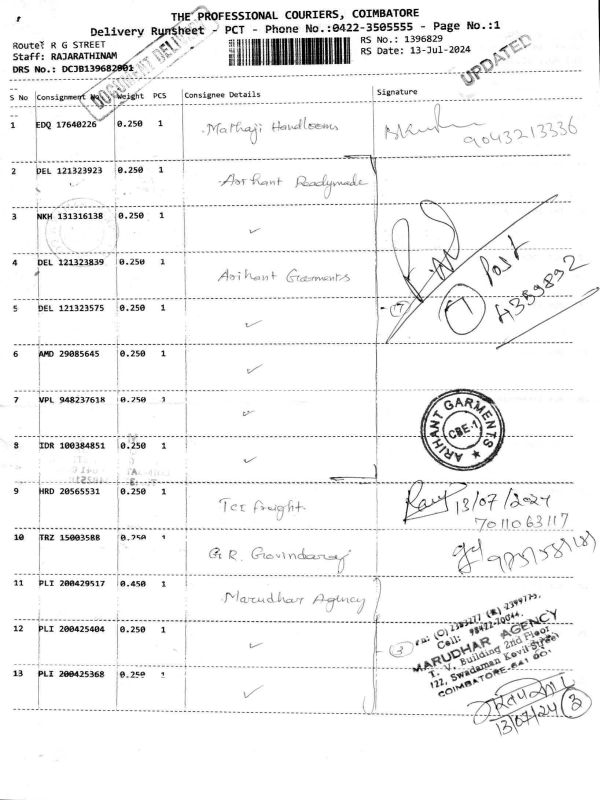 THE PROFESSIONAL COURIERS, COIMBATORE
Delivery Runsheet - PCT - Phone No.:0422-3505555 - Page No.:1
Route: R G STREET
RS No.: 1396829
Staff: RAJARATHINAM
RS Date: 13-Jul-2024
DRS No.: DCJB139682001
DOCUMENT DELIVERY
UPDATED
S No Consignment No Weight PCS Consignee Details Signature
1 EDQ 17640226 0.250 1 Mathaji Handlooms
9043213336
2 DEL 121323923 0.250 1 Arihant Readymade
3 NKH 131316138 0.250 1 ✓
4 DEL 121323839 0.250 1 Arihant Garments
7 Post
4359892
5 DEL 121323575 0.250 1 ✓
7
6 AMD 29085645 0.250 1 ✓
7 VPL 948237618 0.250 1 ✓
ARIHANT GARMENTS
CBE-1
8 IDR 100384851 0.250 1 ✓
9 HRD 20565531 0.250 1 Tci freight
Ravi 13/07/2024
7011063117
10 TRZ 15003588 0.250 1 G.R. Govindaraj
11 PLI 200429517 0.450 1 Marudhar Agency
12 PLI 200425404 0.250 1 ✓
3
MARUDHAR AGENCY
T. V. Building 2nd Floor
122, Swadaman Kovil Street
COIMBATORE-641 001.
13 PLI 200425368 0.250 1 ✓
13/07/24 3